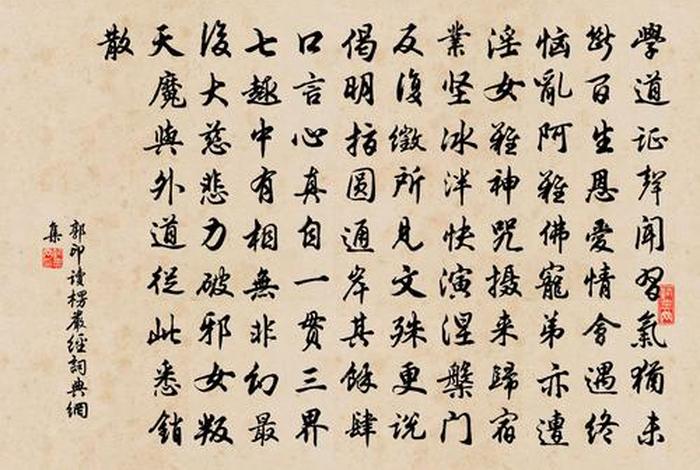 學道证聲聞習氣猶未
斷百生恩愛情會遇終
恼亂阿難佛寵弟亦遭
淫女難神咒摄来歸宿
業坚冰泮快演涅槃門
反復徵所見文殊更说
偈明指圆通岸其餘肆
口言心真自一贯三界
七趣中有相無非幻最
後大慈悲力破邪女叛
天魔與外道從此悉銷
散
郭印讀楞嚴經詞典網
集